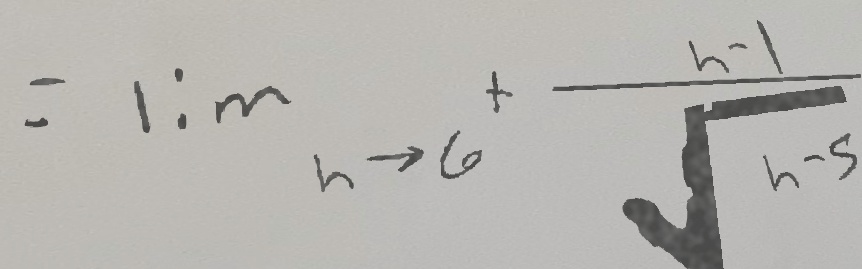 = lim h→6⁺ h-1
√h-5